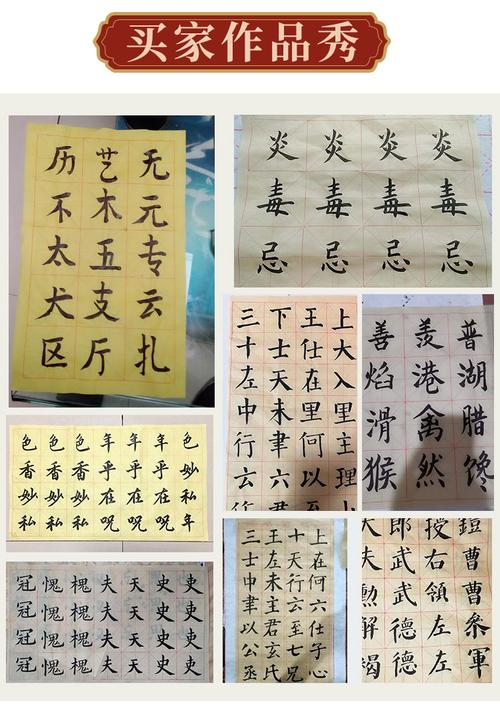 买家作品秀
历艺无
不木元
太五专
犬支云
区厅扎
炎炎炎炎
毒毒毒毒
忌忌忌忌
三下王上
十士仕大
左天在入
中未里里
行聿何主
云六以理
作以至上
善羡普
焰港湖
滑禽腊
猴然馋
色色色年年年色
香香香乎乎乎妙
妙妙妙在在在私
私私私呪呪呪年
冠愧槐夫天史吏
冠愧槐夫天史吏
冠愧槐夫天史吏
冠愧槐夫天史吏
三王十上
士左天在
中未行何
聿主云六
以君至仕
公玄七子
丞氏兄心
大郎授鎧
夫武右曹
勲武領曹
解德左参
褐德左軍